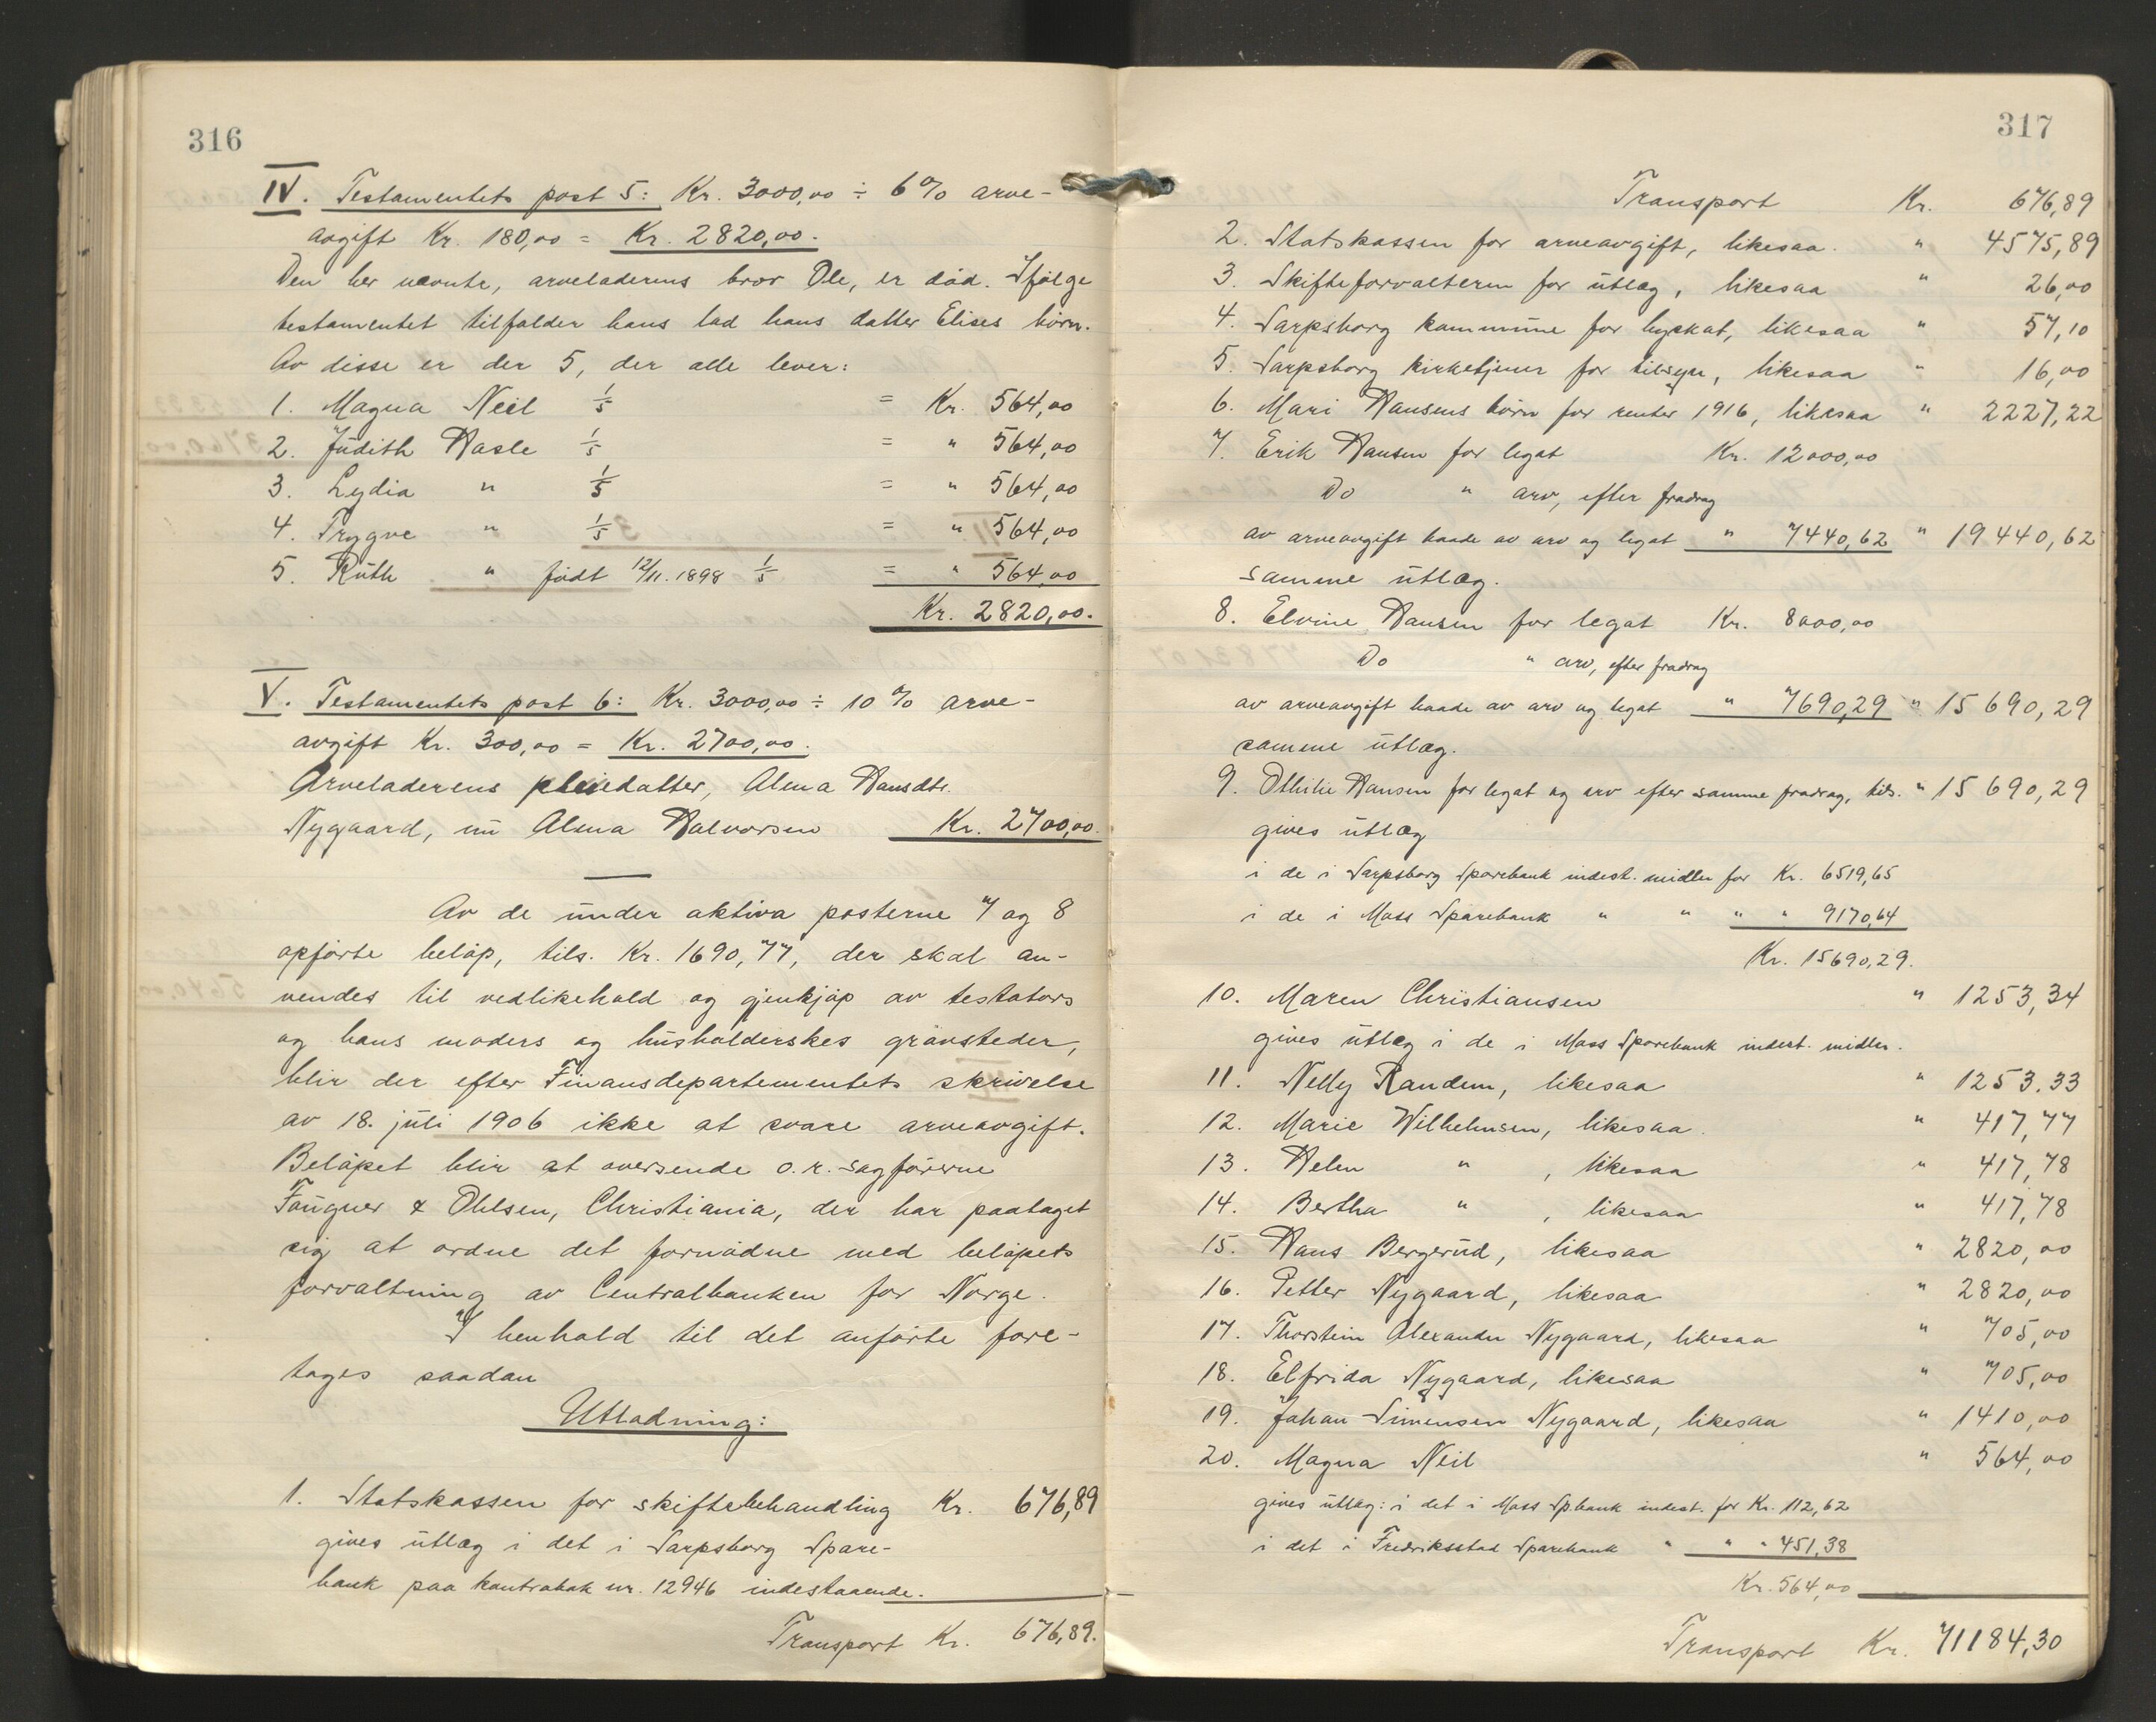 316
IV. Testamentets post 5: Kr. 3000,00 ÷ 6% arve-
avgift Kr. 180,00 = Kr. 2820,00.
Den her nævnte, arveladerens bror Ole, er död. Ifölge
testamentet tilfalder hans lod hans datter Elises börn.
Av disse er der 5, der alle lever:
1. Magna Neil 1/5 = Kr. 564,00
2. Judith Hasle 1/5 = " 564,00
3. Lydia " 1/5 = " 564,00
4. Trygve " 1/5 = " 564,00
5. Ruth " födt 12/11. 1898 1/5 = " 564,00
Kr. 2820,00.
V. Testamentets post 6: Kr. 3000,00 ÷ 10% arve-
avgift Kr. 300,00 = Kr. 2700,00.
Arveladerens pleiedatter, Alma Hansdtr.
Nygaard, nu Alma Halvorsen Kr. 2700,00.
Av de under aktiva posterne 7 og 8
opförte belöp, tils. Kr. 1690,77, der skal an-
vendes til vedlikehold og gjenkjöp av testators
og hans moders og husholderskes gravsteder,
blir der efter Finansdepartementets skrivelse
av 18. juli 1906 ikke at svare arveavgift.
Belöpet blir at oversende o.r.sagförerne
Fougner & Ohlsen, Christiania, der har paataget
sig at ordne det fornödne med belöpets
forvaltning av Centralbanken for Norge.
I henhold til det anförte fore-
tages saadan
Utlodning:
1. Statskassen for skiftebehandling Kr. 676,89
gives utlæg i det i Sarpsborg Spare-
bank paa kontrabok nr. 12946 indestaaende.
Transport Kr. 676,89.
317
Transport Kr. 676,89
2. Statskassen for arveavgift, likesaa. " 4575,89
3. Skifteforvalteren for utlæg, likesaa " 26,00
4. Sarpsborg kommune for byskat, likesaa " 57,10
5. Sarpsborg kirketjener for tilsyn, likesaa " 16,00
6. Mari Hansens börn for renter 1916, likesaa " 2227,22
7. Erik Hansen for legat Kr. 12000,00
Do " arv, efter fradrag
av arveavgift baade av arv og legat " 7440,62 " 19440,62
samme utlæg.
8. Elvine Hansen for legat Kr. 8000,00
Do " arv, efter fradrag
av arveavgift baade av arv og legat " 7690,29 " 15690,29
samme utlæg.
9. Othilie Hansen for legat og arv efter samme fradrag, tils. " 15690,29
gives utlæg
i de i Sarpsborg Sparebank indest. midler for Kr. 6519,65
i de i Moss Sparebank " " " " 9170,64
Kr. 15690,29.
10. Maren Christiansen " 1253,34
gives utlæg i de i Moss Sparebank indest. midler.
11. Nelly Randem, likesaa " 1253.33
12. Marie Wilhelmsen, likesaa. " 417,77
13. Helen " , likesaa " 417,78
14. Bertha " , likesaa " 417,78
15. Hans Bergerud, likesaa " 2820,00
16. Petter Nygaard, likesaa " 2820,00
17. Thorstein Alexander Nygaard, likesaa " 705,00
18. Elfrida Nygaard, likesaa " 705,00
19. Johan Simensen Nygaard, likesaa " 1410,00
20. Magna Neil " 564,00
gives utlæg: i det i Moss Sp.bank indest. for Kr. 112,62
i det i Fredriksstad Sparebank " " " 451,38
Kr. 564,00
Transport Kr. 71184,30